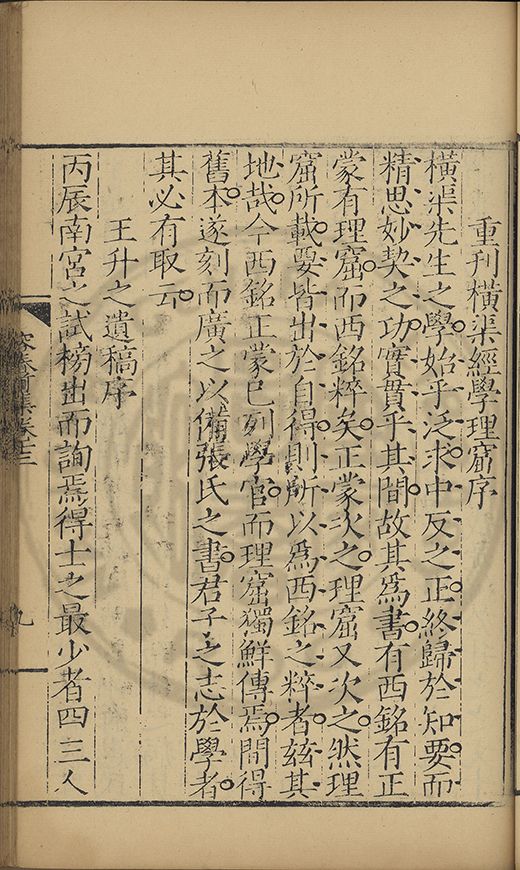 重刊橫渠經學理窟序
橫渠先生之學始乎泛求中反之正終歸於知要而
精思妙契之功實貫乎其間故其爲書有西銘有正
蒙有理窟而西銘粹矣正蒙次之理窟又次之然理
窟所載要皆出於自得則所以爲西銘之粹者玆其
地哉今西銘正蒙已列學官而理窟獨鮮傳焉間得
舊本遂刻而廣之以備張氏之書君子之志於學者
其必有取云
王升之遺稿序
丙辰南宮之試榜出而詢焉得士之最少者四三人
九